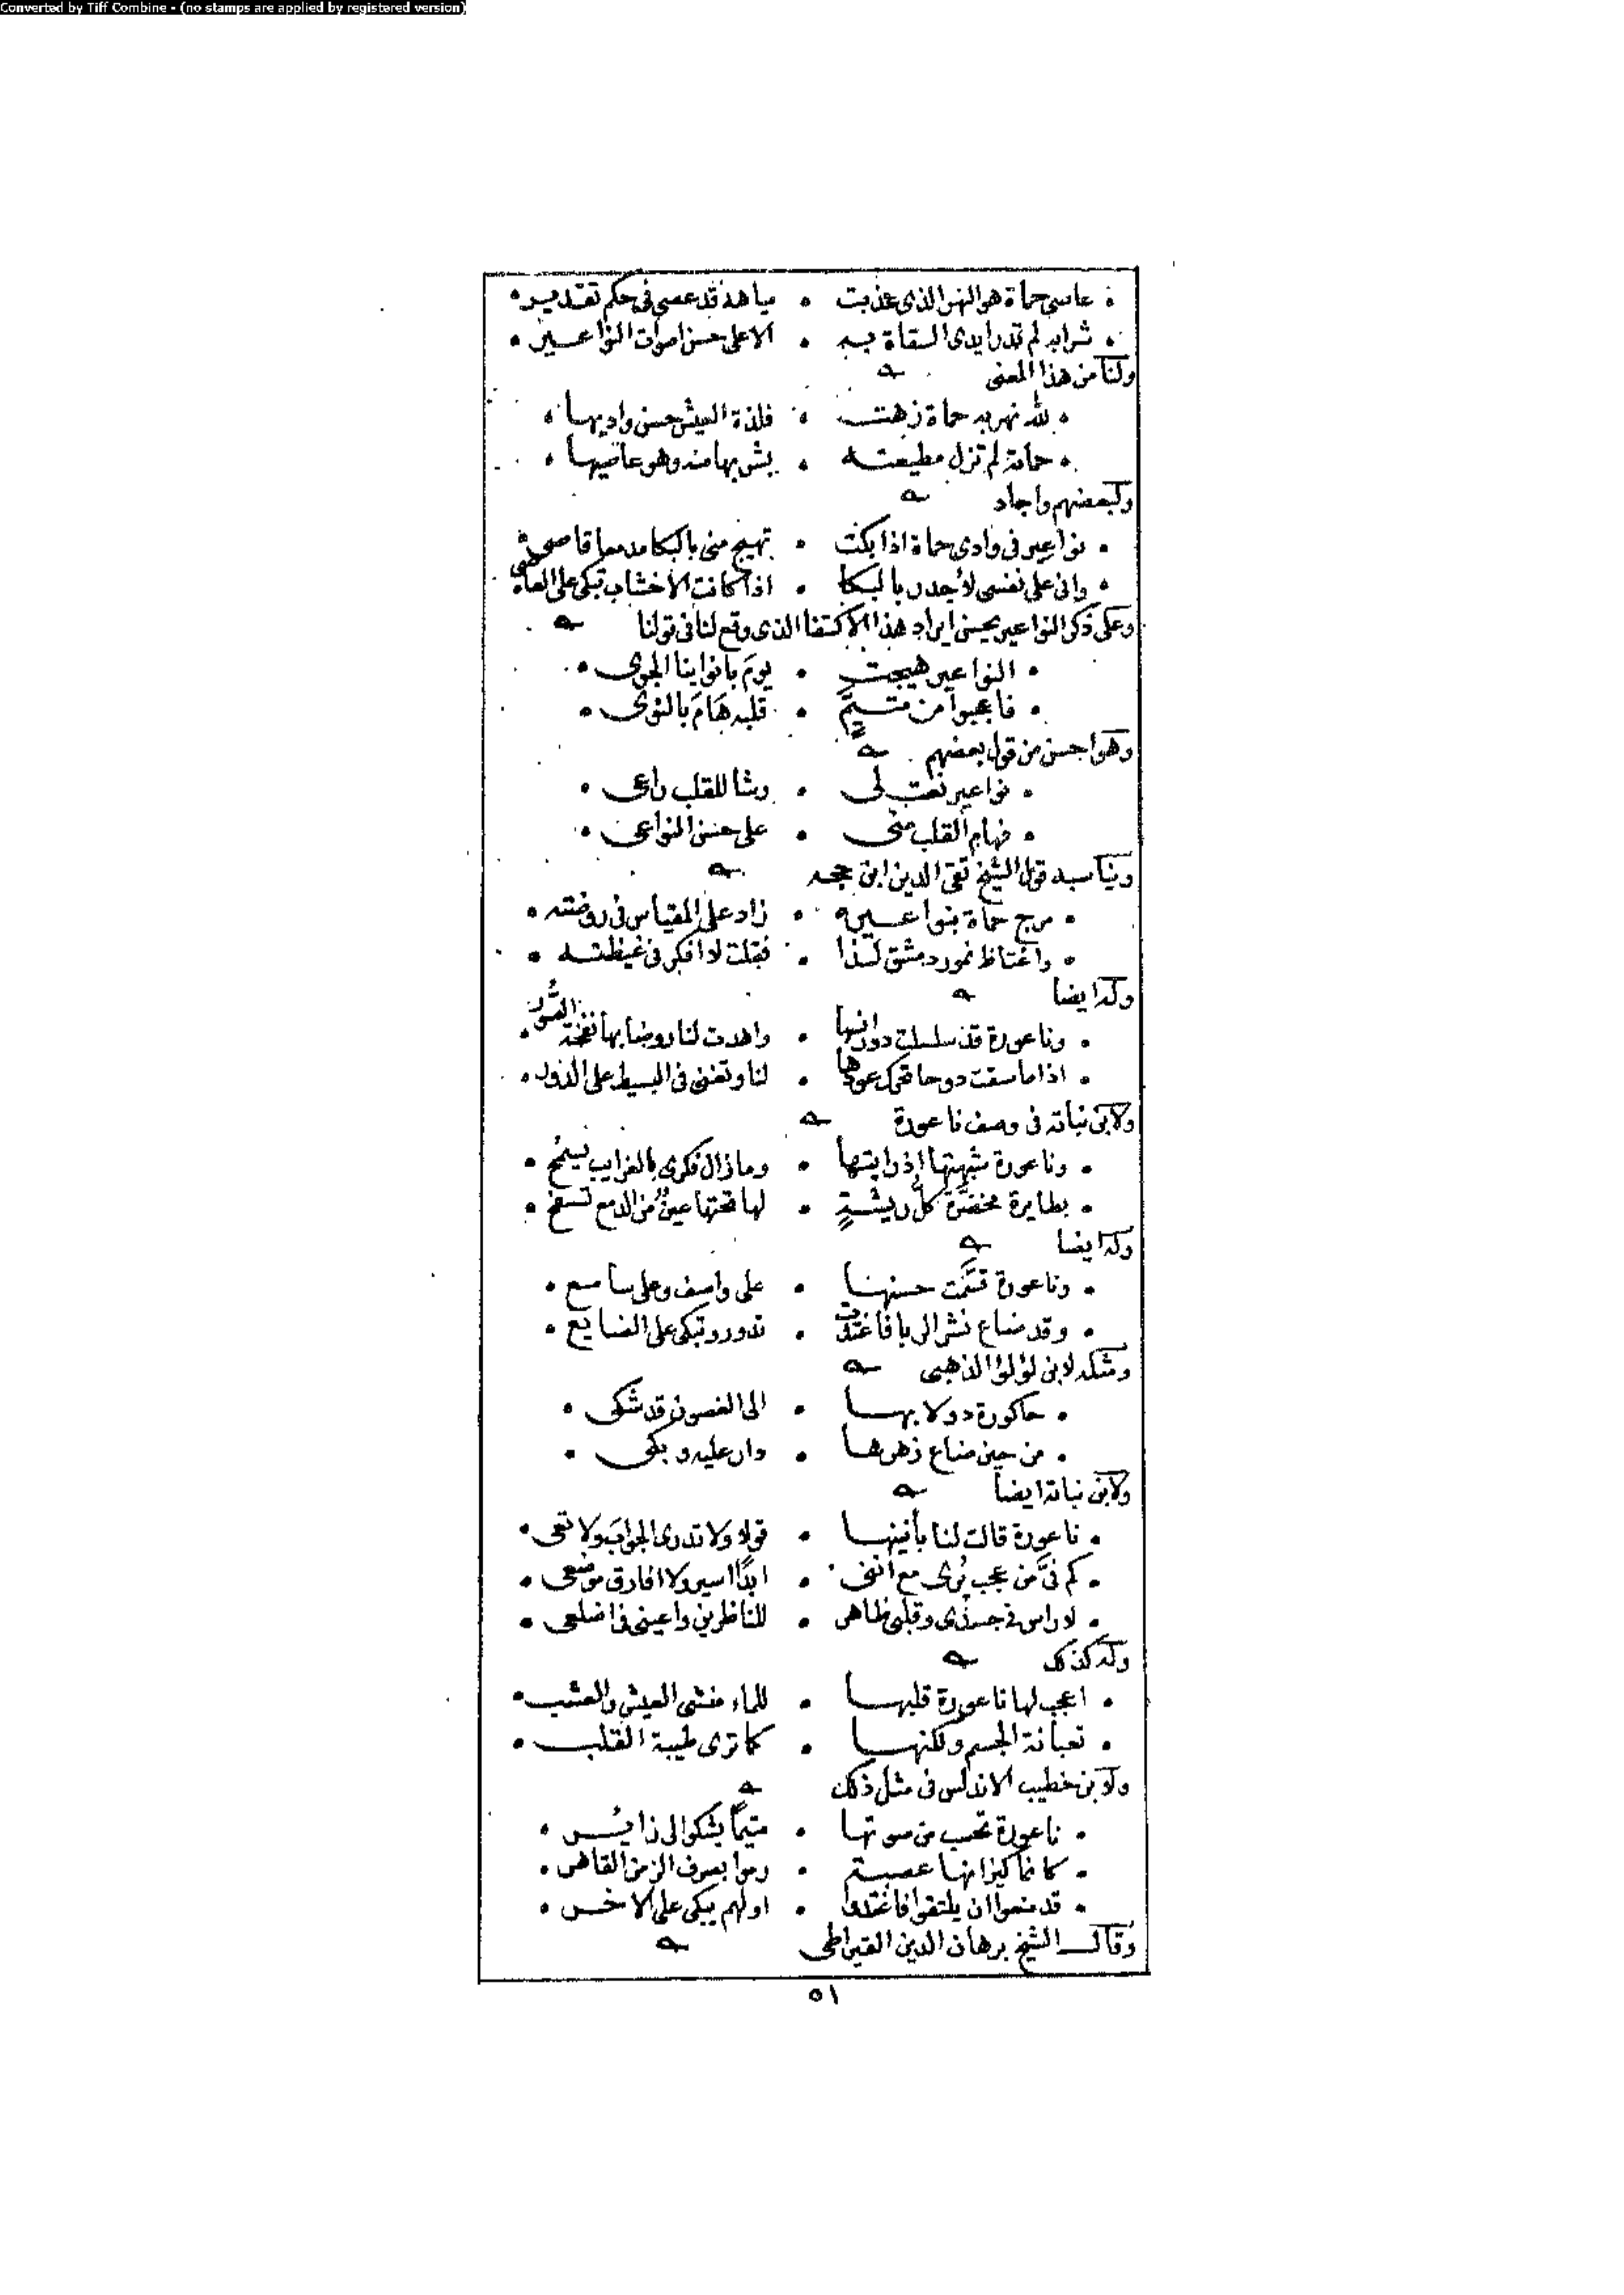 Converted by Tiff Combine - (no stamps are applied by registered version)
• عاصى حماة هو النهر الذى عذبت • مياهه قد عصى فى حكم تقدير •
• شرابه لم تدر ايدى السقاة به • الا على حسن اصوات النواعير •
ولنا من هذا المعنى
• لله نهر به حماة زهت • فلذة العيش حسن واديها •
• حماته لم تزل مطيعته • يشربها منه وهو عاصيها •
ولبعضهم واجاد
• نواعير فى وادى حماة اذا بكت • تهيج منى بالبكا مدمعا قاصى
• وانى على نفسى لأجدر بالبكا • اذا كانت الاخشاب تبكى على العاصى
وعلى ذكر النواعير يحسن ايراد هذا الاكتفا الذى وقع لنا فى قولنا
• النواعير هيجت • يوم بانوا بنا الجوى •
• فاعجبوا من متيمٍ • قلبه هَامَ بالنوى •
وهو احسن من قول بعضهم
• نواعير نعت لى • رشا للقلب راعى •
• فهام القلب منى • على حسن النواعى •
ويناسبه قول الشيخ تقى الدين ابن حجه
• مرج حماة بنواعيره • زاد على المقياس فى روضته •
• واغتاظ نهور دمشق لذا • فقلت لا افكر فى غيظته •
وله ايضا
• وناعورة قد سلسلت دورانها • واهدت لنا روضا بها نفخة الصُّور •
• اذا ما سقت دوحا تحرك عودها • لنا وتغنى فى البسيط على الدور •
ولابن نباته فى وصف ناعورة
• وناعورة شبهتها إذ رايتها • وما زال فكرى بالغرايب يسنحُ •
• بطايرة مخضرّة كلّ ريشةٍ • لها تحتها عينٌ من الدمع تسفح •
وله ايضا
• وناعورة قسَّمت حسنها • على واصف وعلى سامع •
• وقد ضاع نشر الربا فاغتدت • تدور وتبكى على الضايع •
ومثله لابن لؤلؤ الذهبى
• حاكورة دولابها • الى الغصون قد شكى •
• من حين ضاع زهرها • دار عليه وبكى •
ولابن نباتة ايضا
• ناعورة قالت لنا بأنينها • قولا ولا تدرى الجوابَ ولا تعى •
• كم فىَّ من عجب يُرى مع اننى • ابدًا اسير ولا افارق موضعى •
• لا راس فى جسدى وقلبى ظاهر • للناظرين واعينى فى اضلعى •
وله كذلك
• اعجب لها ناعورة قلبها • للماء منشى العيش والعشب •
• تعبانة الجسم ولكنها • كما ترى طيبة القلب •
ولابن خطيب الاندلس فى مثل ذلك
• ناعورة تحسب من صوتها • متيمًا يشكو الى زائر •
• كانما كيزانها عصبة • رموا بصرف الزمن القاهر •
• قد منعوا ان يلتقوا فاغتدى • اولهم يبكى على الاخر •
وقال الشيخ برهان الدين القيراطى
٥١